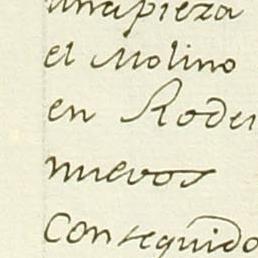 una pieza
el Molino
en Roder
nuevos
Conseguido